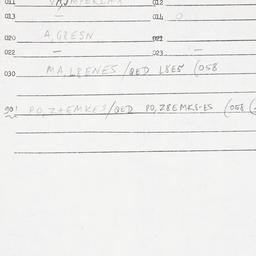 011 012
013 — 014 0
020 A, GRESN 021
022 — 023 —
030 MA, LBENES /QED L8E5 (058
90! PO, Z+EMKES/QED PO, Z8EMK8-ES (058 (